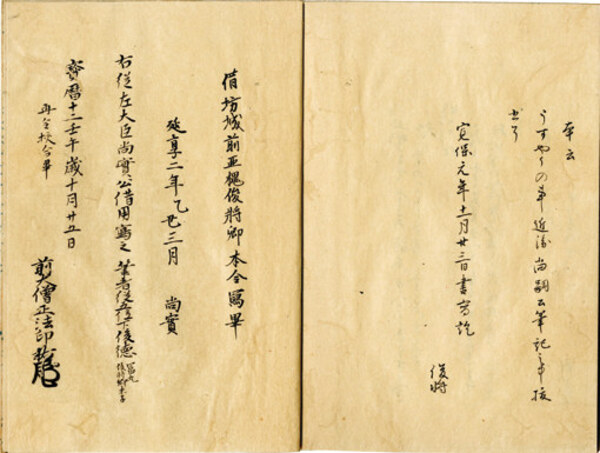 本云
うすやうの事近衛尚嗣公筆記之中抜
出了
寛保元年十一月廿三日書写訖
俊将
借坊城前亜槐俊将卿本令写畢
延享二年乙丑三月 尚實
右従左大臣尚實公借用寫之筆者従五位下俊徳
寳暦十二壬午歳十月廿五日
再令校合畢
前大僧正法印